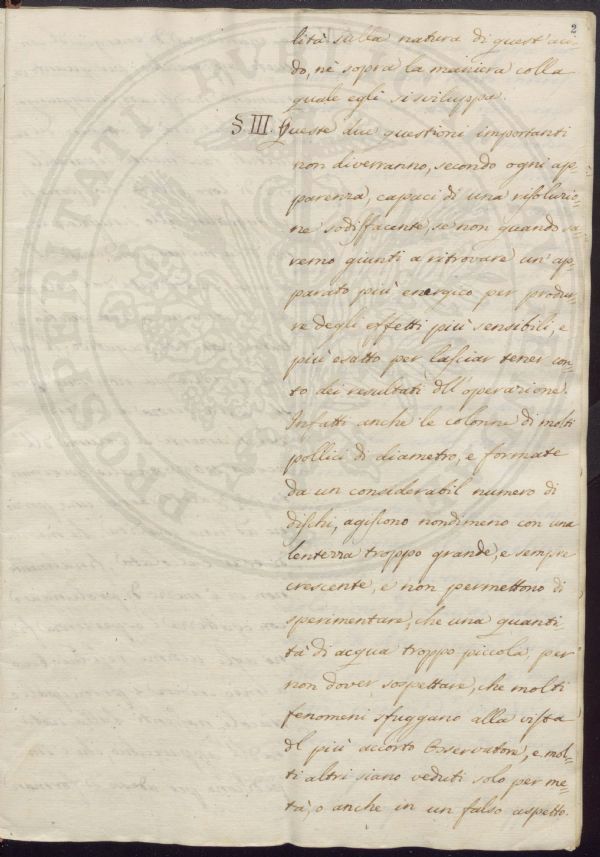 2
lità sulla natura di quest'aci-
do, nè sopra la maniera colla
quale egli si sviluppa.
§. III. Queste due questioni importanti
non diverranno, secondo ogni ap-
parenza, capaci di una risoluzio-
ne sodisfacente, se non quando sa-
remo giunti a ritrovare un'ap-
parato più energico per produr-
re degli effetti più sensibili, e
più esatto per lasciar tener con-
to dei resultati dll'operazione.
Infatti anche le colonne di molti
pollici di diametro, e formate
da un considerabil numero di
dischi, agiscono nondimeno con una
lentezza troppo grande, e sempre
crescente, e non permettono di
sperimentare, che una quanti-
tà di acqua troppo piccola, per
non dover sospettare, che molti
fenomeni sfuggano alla vista
dl più accorto Osservatore, e mol-
ti altri siano veduti solo per me-
tà, o anche in un falso aspetto.
PROSPERITATI PUBLICAE